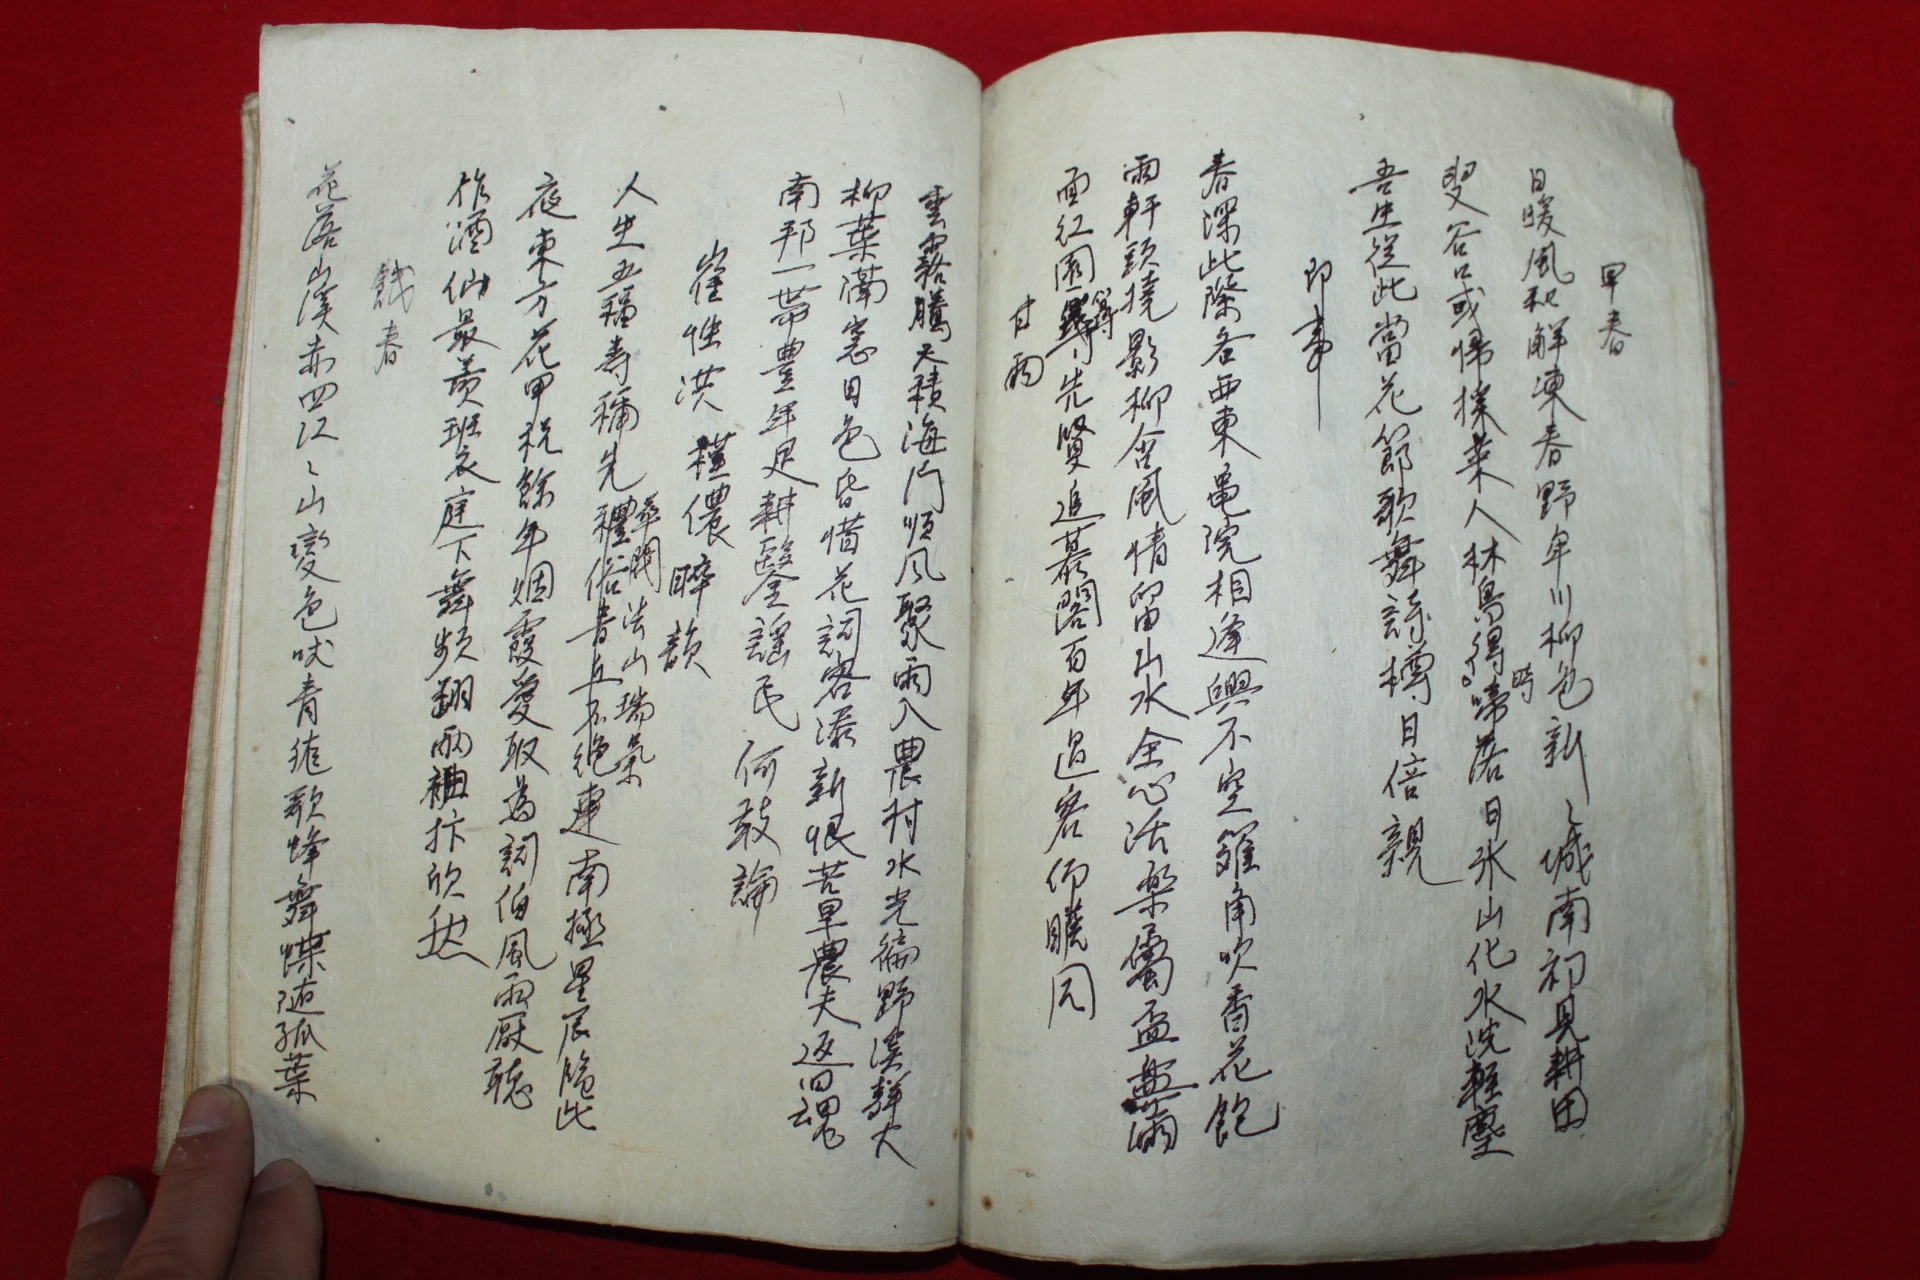 早春
日暖風和解凍春野年川柳色新〻城南初見耕田
叟谷口或帰採菜人林鳥得時啼落日氷山化水洗輕塵
吾生從此當花節歌舞詩樽日倍親
即事
春深此際各西東黽院相逢興不空雞角吹香花飽
雨軒頭撓影柳含風情留山水全心活樂屬盃盤兩
面紅園樽先賢追慕閣百年過客仰瞻同
甘雨
雲霧騰天積海門順風聚雨入農村水光徧野溪輝大
柳葉滿窓日色昏惜花詞客添新恨苦旱農夫返旧魂
南邦一帶豊年足耕鑿全謠民何敢論
崔性洪 權儂晬韻
人生五福壽稱先禮俗青丘不絶連南極星辰臨此
彛閣法山瑞氣
夜東方花甲祝餘年烟霞愛取為詞伯風雨厭聴
作酒仙最羨班衣庭下舞頻翻兩袖抃欣然
餞春
花落山溪赤四江〻山變色吠青徙歌蜂舞蝶随孤葉